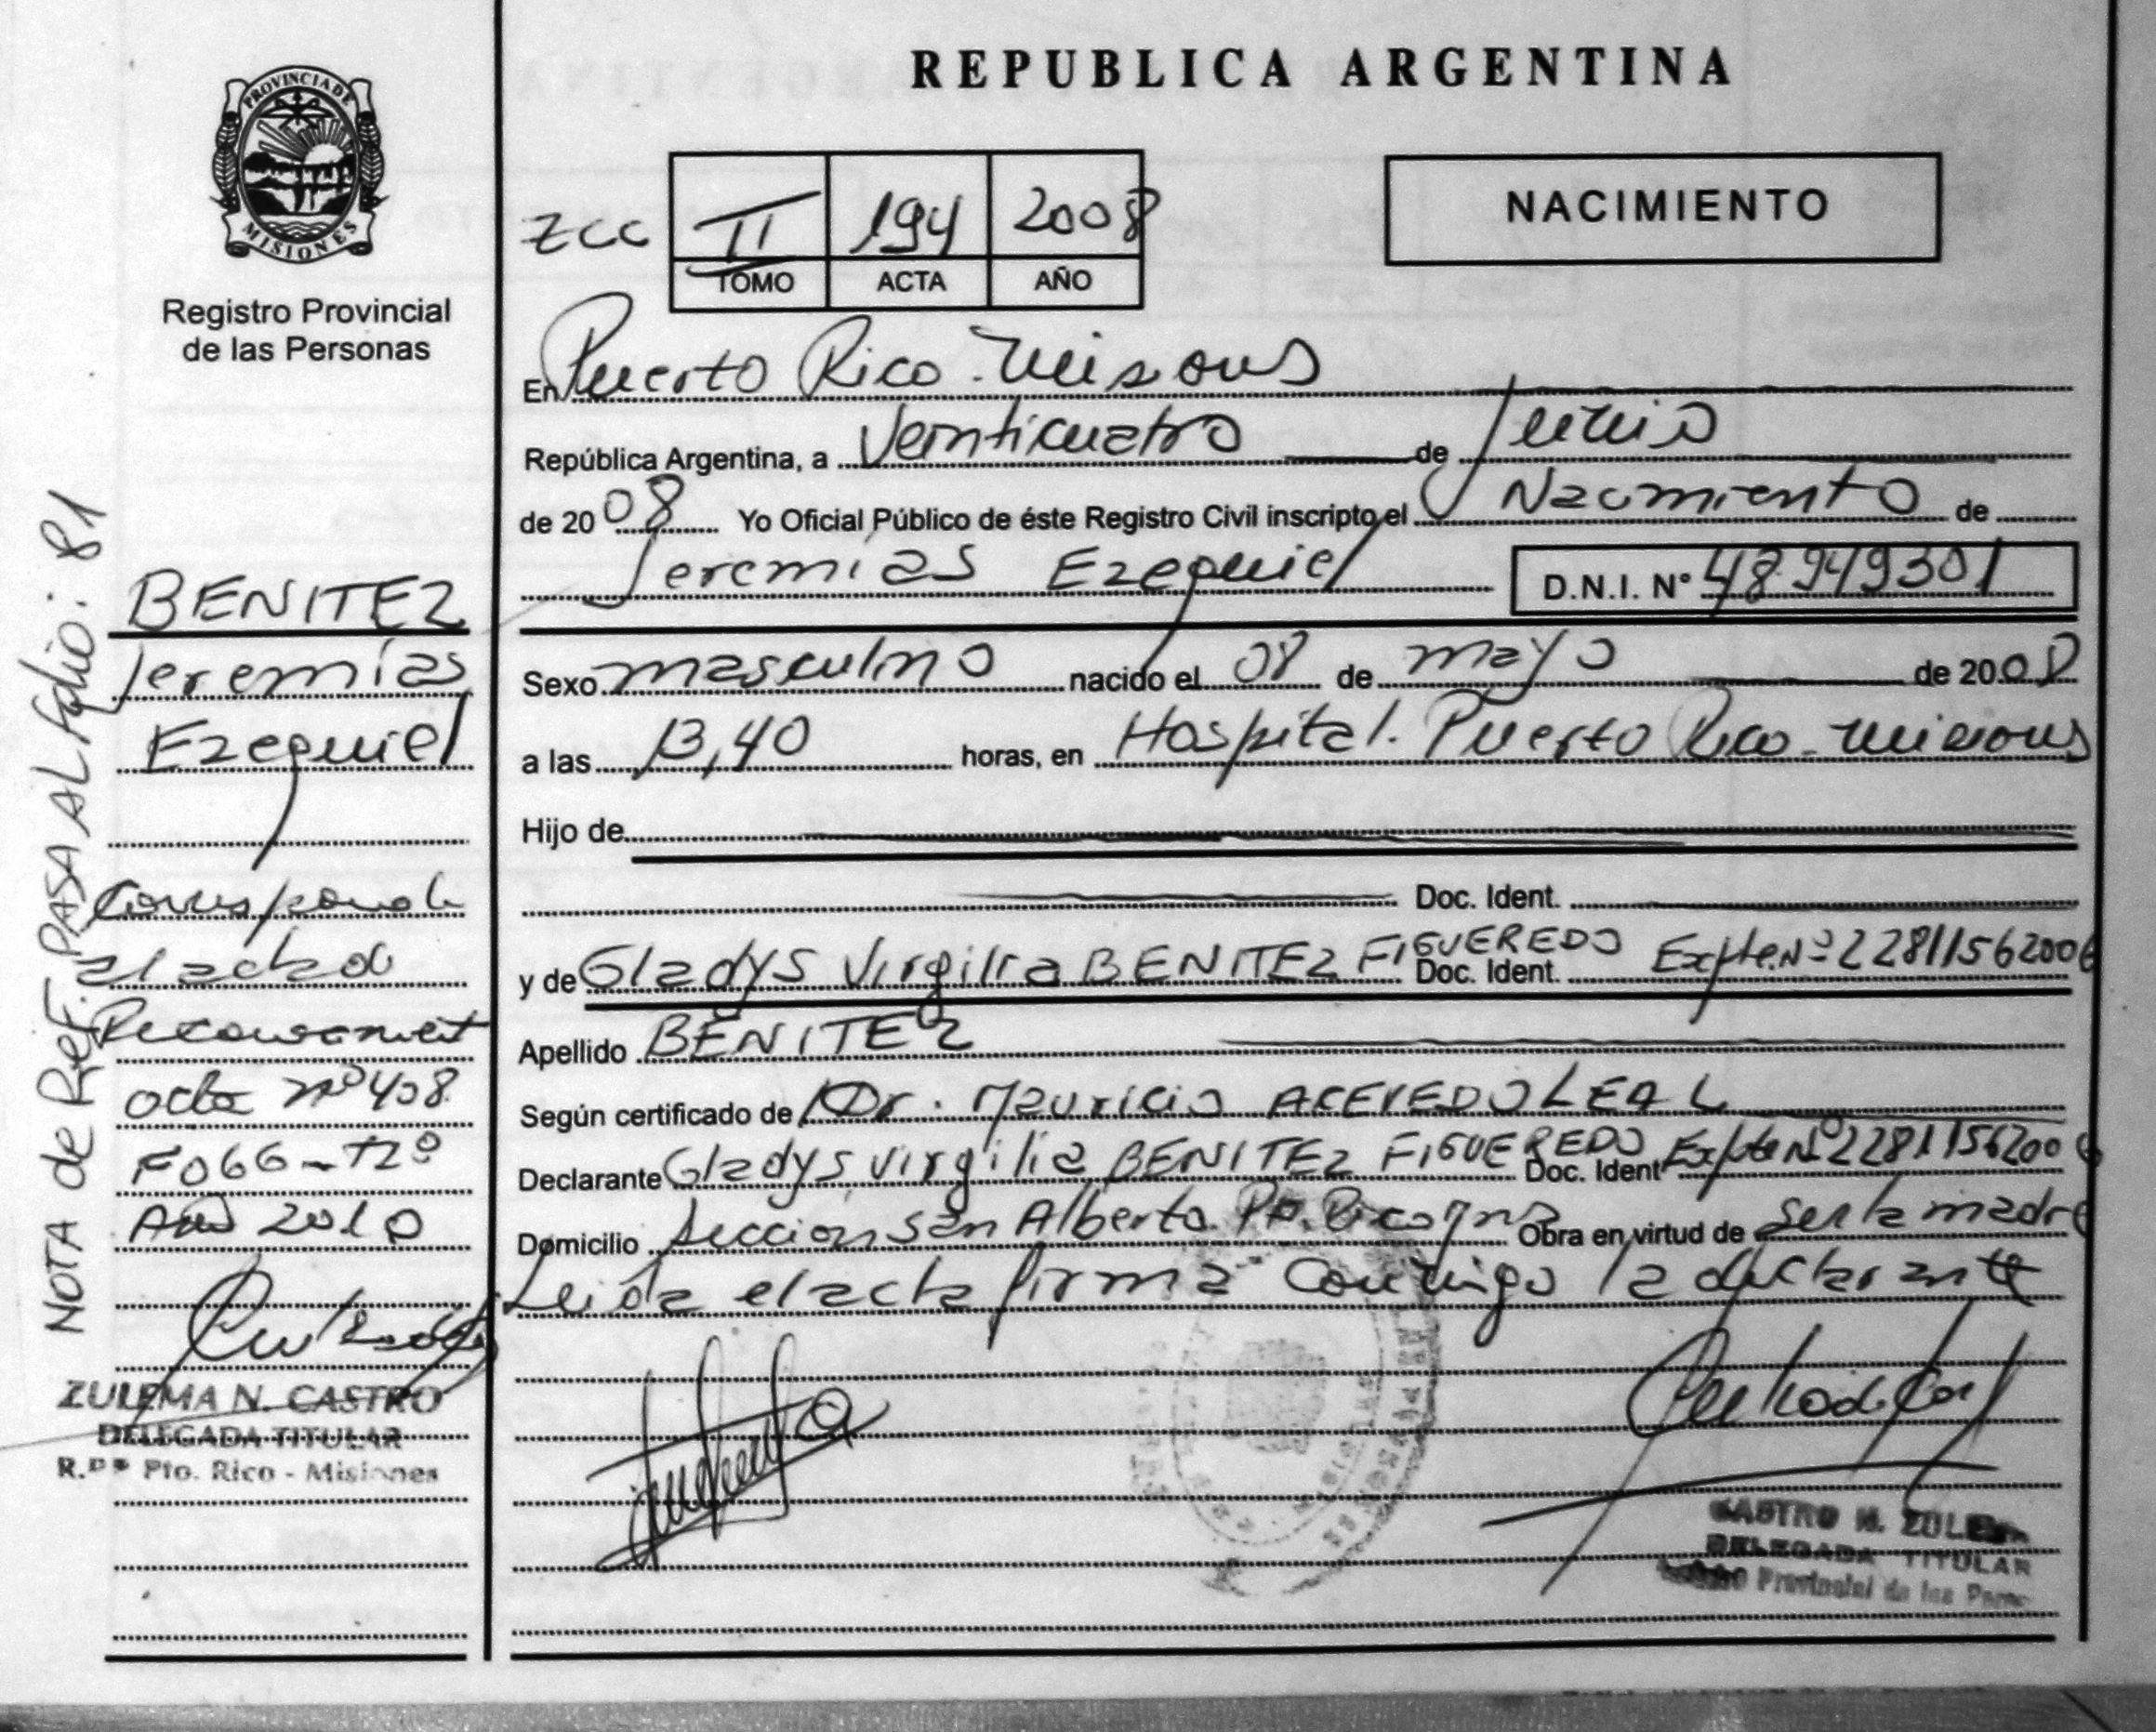 REPUBLICA ARGENTINA
PROVINCIA DE
MISIONES
Registro Provincial
de las Personas
NACIMIENTO
ZCC II 194 2008
TOMO ACTA AÑO
En Puerto Rico - Misiones
República Argentina, a Veinticuatro de Junio
de 2008 Yo Oficial Público de éste Registro Civil inscripto el Nacimiento de
Jeremías Ezequiel D.N.I. Nº 48.949301
Sexo masculino nacido el 08 de mayo de 2008
a las 13,40 horas, en Hospital. Puerto Rico - Misiones
Hijo de
Doc. Ident.
y de Gladys Virgilia BENITEZ FIGUEREDO Doc. Ident. Expte. Nº 22811562006
Apellido BENITEZ
Según certificado de Dr. Mauricio ACEVEDO LEAL
Declarante Gladys Virgilia BENITEZ FIGUEREDO Doc. Ident Expte Nº 22811562006
Domicilio Sección San Alberto. Pto. Rico Mns Obra en virtud de ser la madre
Leida el acta firma conmigo la declarante
CASTRO N. ZULEMA
DELEGADA TITULAR
Provincial de las Pers
NOTA de Ref. PASA AL folio: 81
BENITEZ
Jeremías
Ezequiel
Corresponde
al acta de
Reconocimiet
acta nº 408
Fº 66 - Tº
Año 2010
ZULEMA N. CASTRO
DELEGADA TITULAR
R.PP Pto. Rico - Misiones